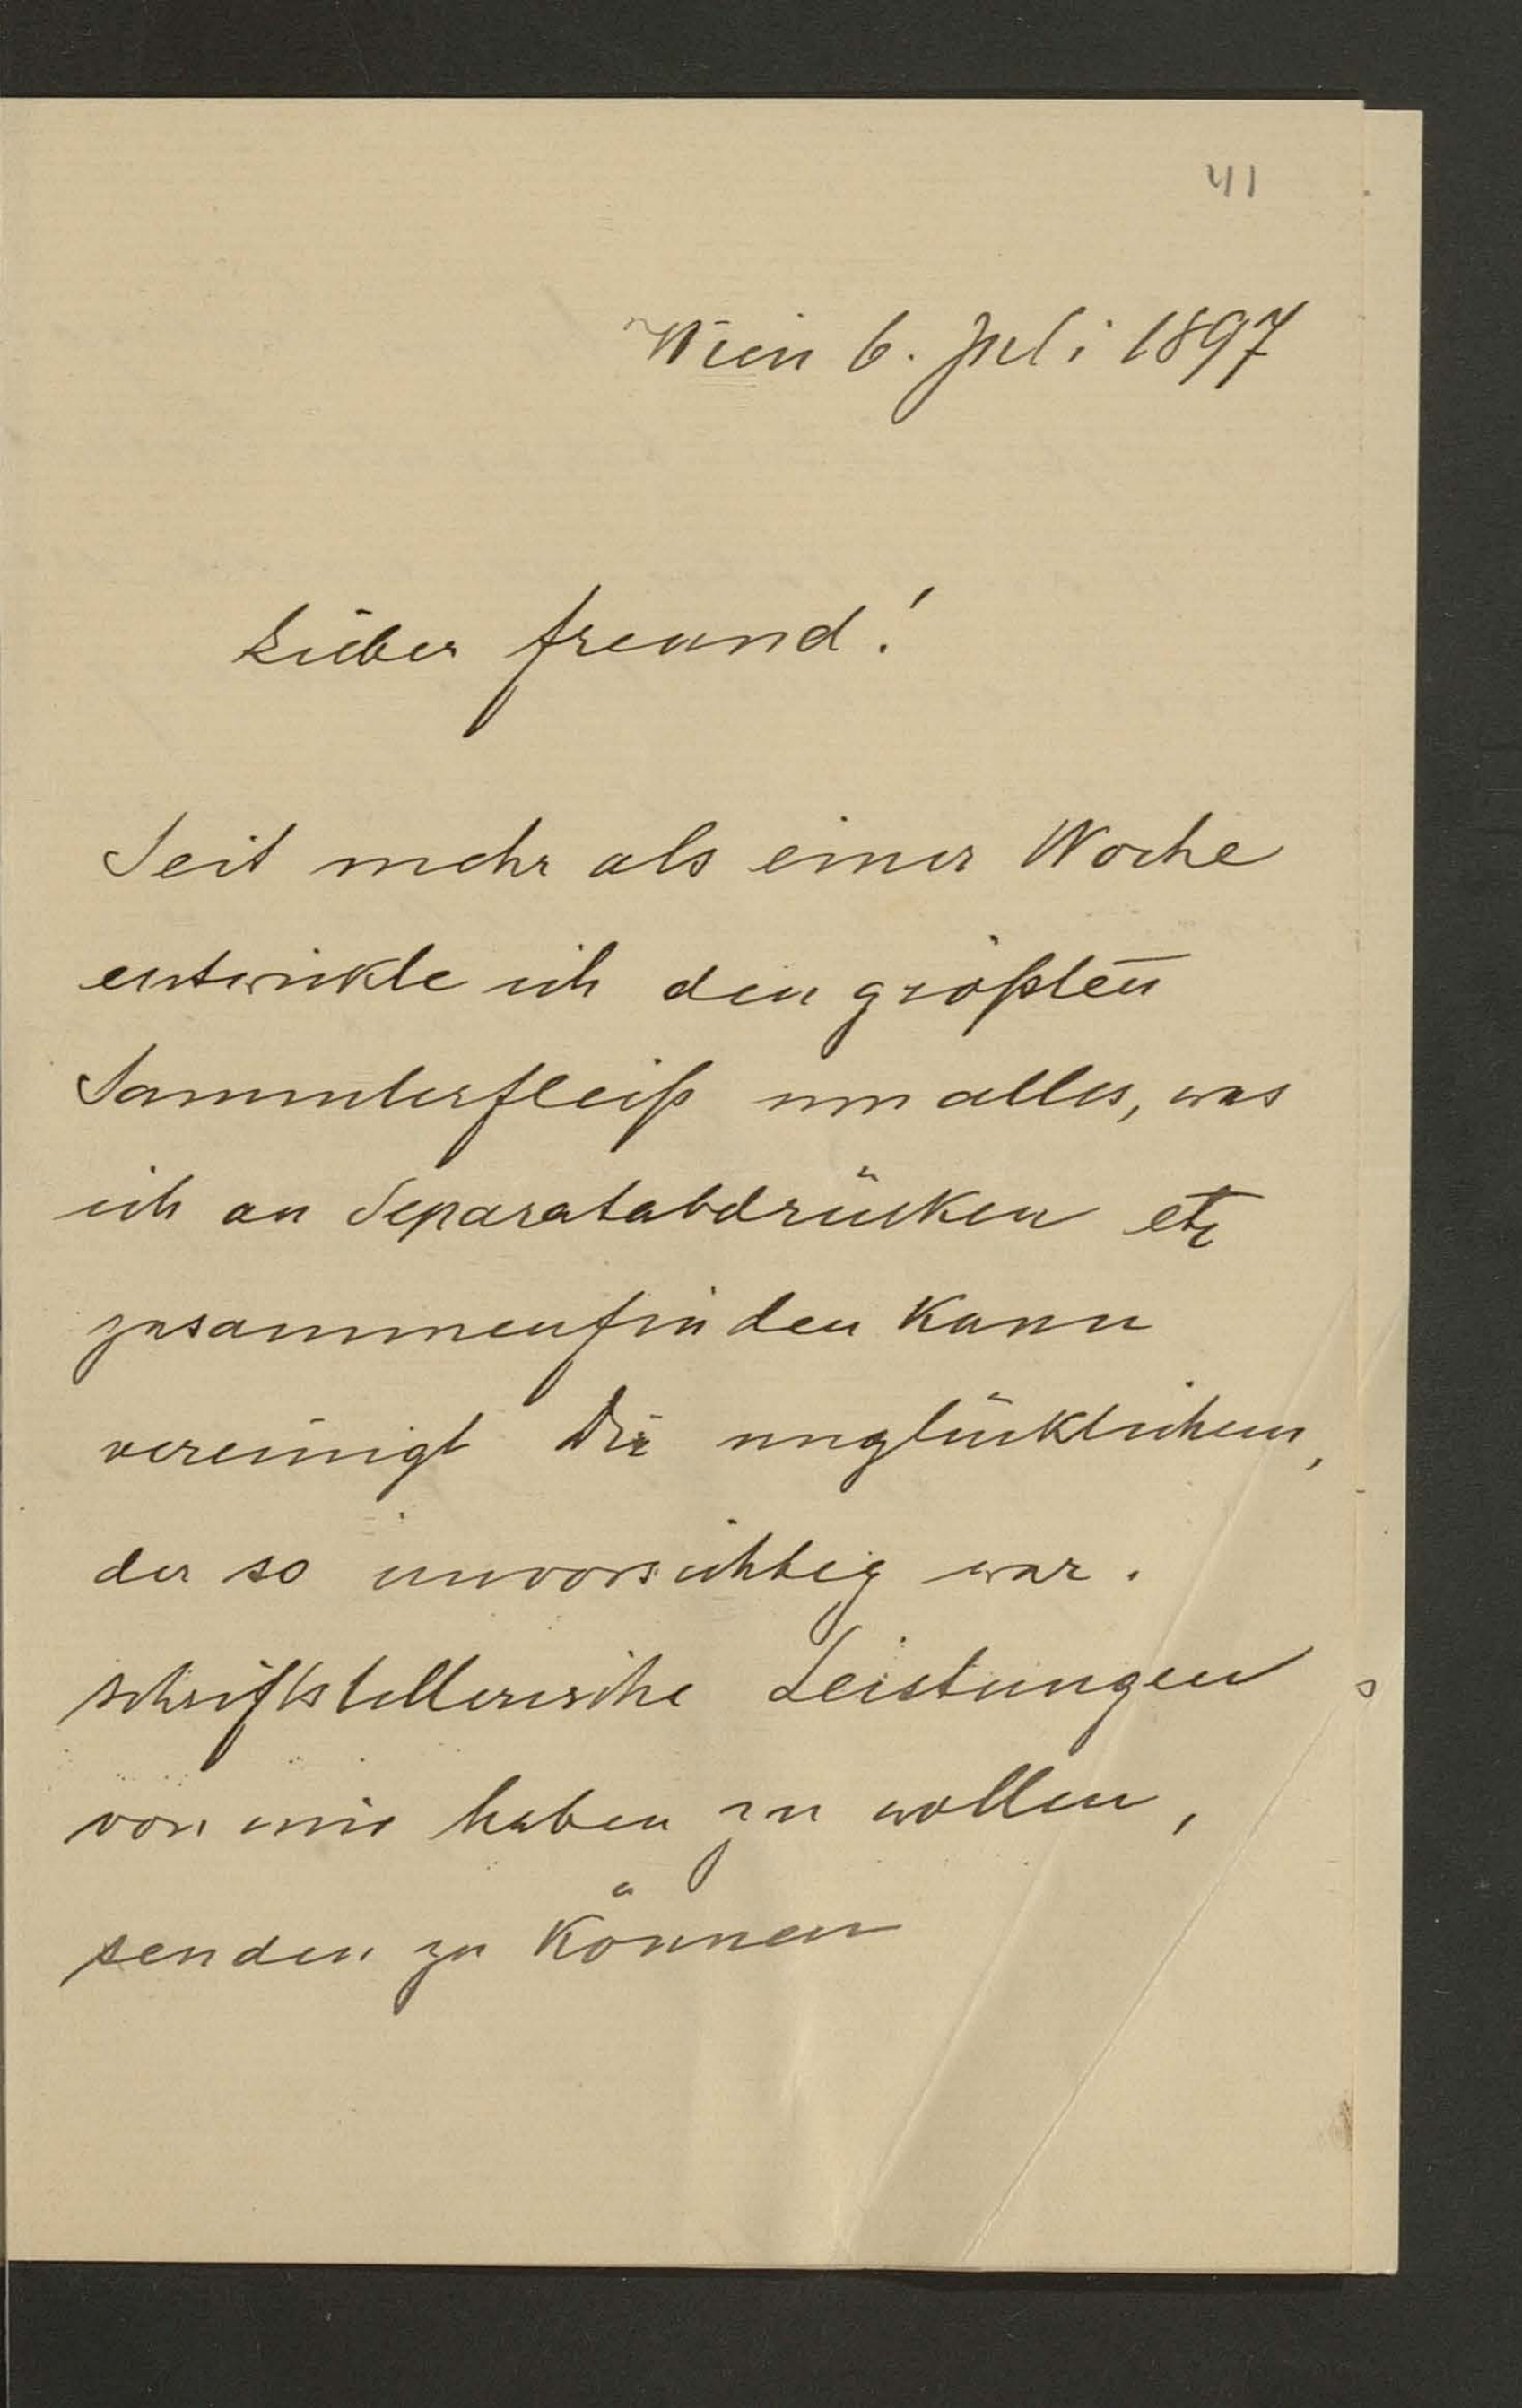 41
Wien 6. Juli 1897
Lieber Freund!
Seit mehr als einer Woche
entwickle ich den größten
Sammlerfleiß um alles, was
ich an Separatabdrücken etc
zusammenfinden kann
vereinigt Dir unglücklichem,
der so unvorsichtig war.
schriftstellerische Leistungen
von mir haben zu wollen,
senden zu können